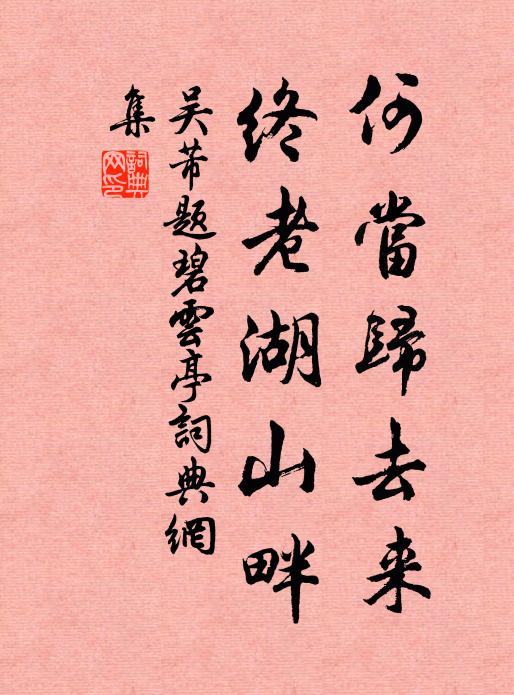 何當歸去来
終老湖山畔
吴芾題碧雲亭詞典網
集
詞典網印